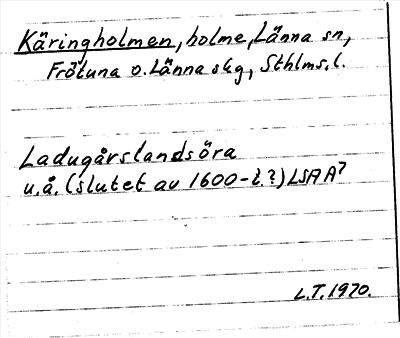 Käringholmen, holme, Länna sn,
Frötuna o. Länna skg, Sthlms. l.
Ladugårslandsöra
u.å. (slutet av 1600-t.?) LSA A7
L.T. 1970.